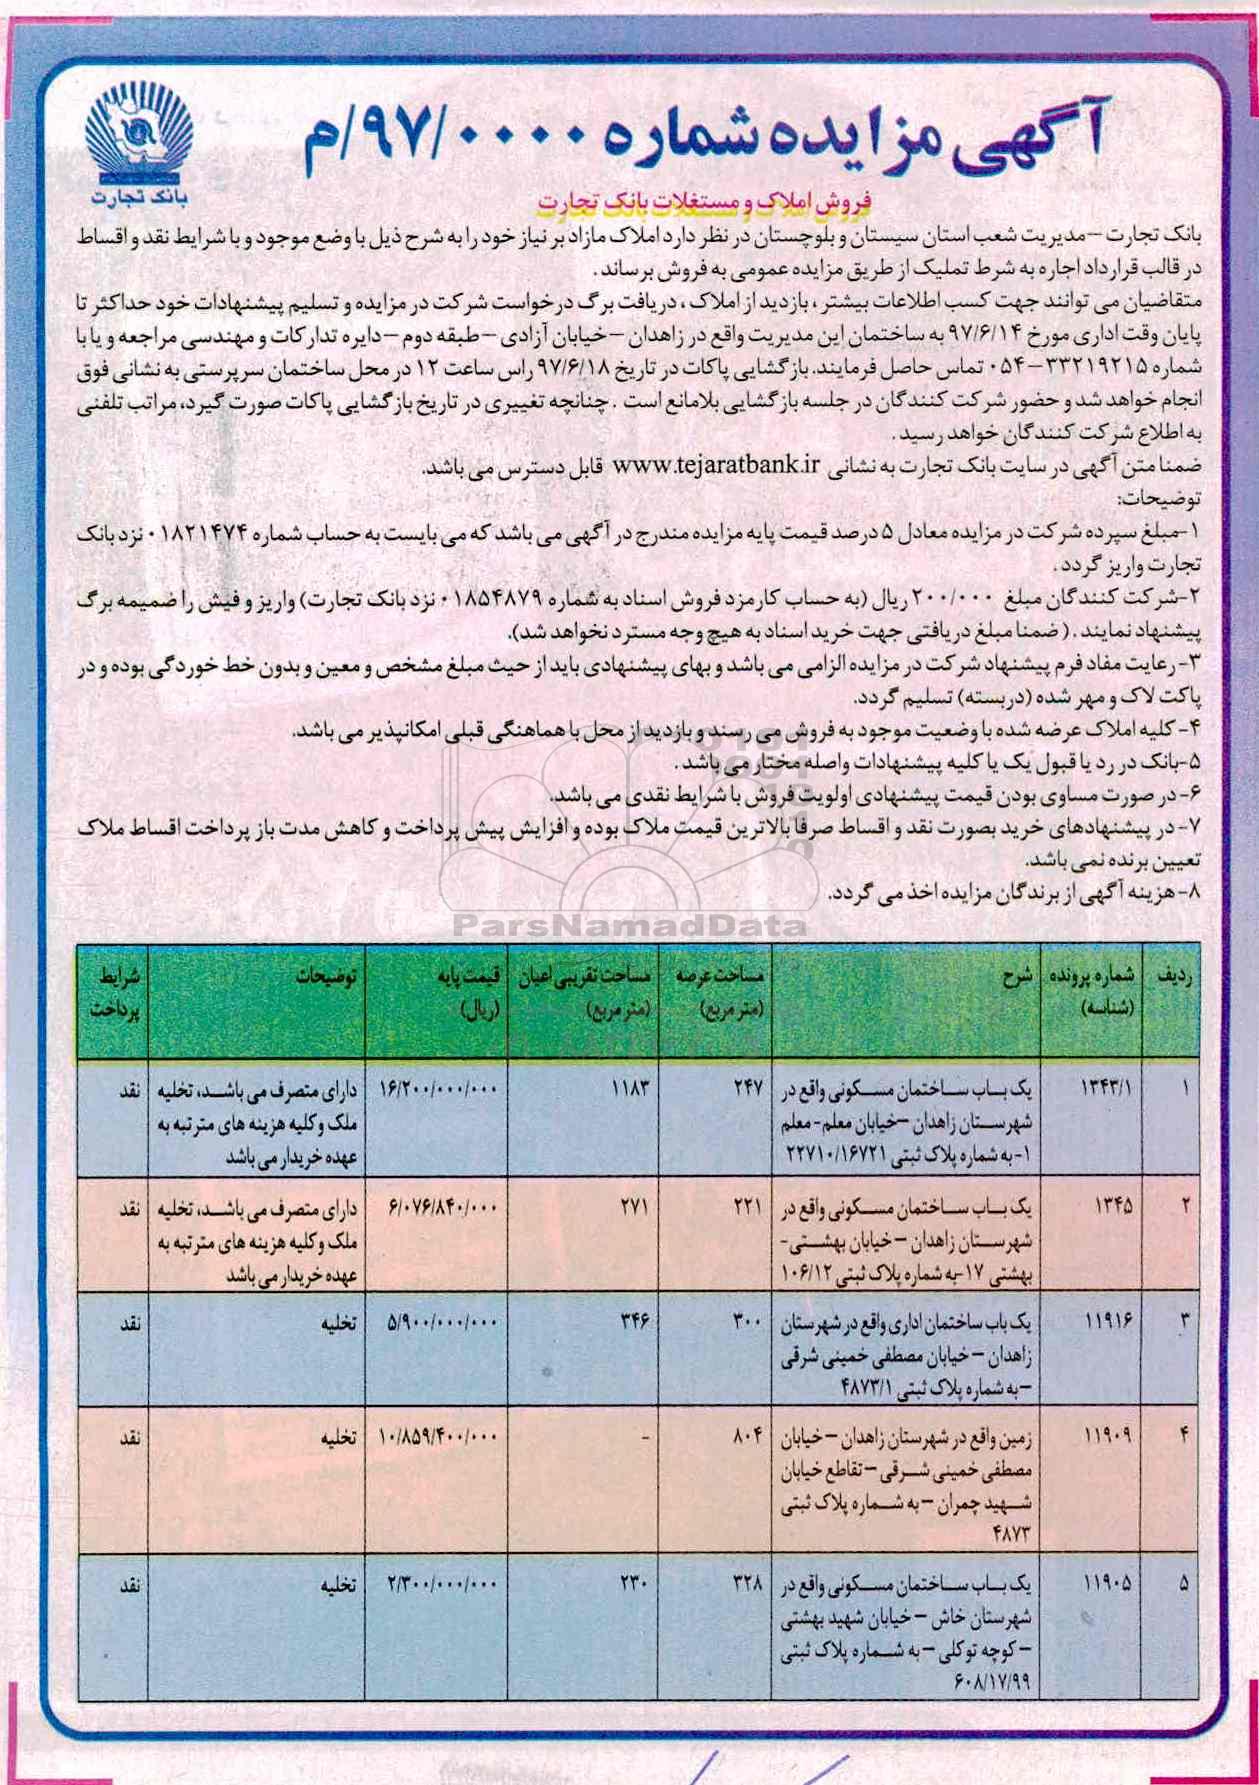 آگهی مزایده شماره ۹۷/۰۰۰۰/م
بانک تجارت
فروش املاک و مستغلات بانک تجارت
بانک تجارت –مدیریت شعب استان سیستان و بلوچستان در نظر دارد املاک مازاد بر نیاز خود را به شرح ذیل با وضع موجود و با شرایط نقد و اقساط
در قالب قرارداد اجاره به شرط تملیک از طریق مزایده عمومی به فروش برساند .
متقاضیان می توانند جهت کسب اطلاعات بیشتر ، بازدید از املاک ، دریافت برگ درخواست شرکت در مزایده و تسلیم پیشنهادات خود حداکثر تا
پایان وقت اداری مورخ ۹۷/۶/۱۴ به ساختمان این مدیریت واقع در زاهدان –خیابان آزادی –طبقه دوم –دایره تدارکات و مهندسی مراجعه و یا با
شماره ۳۳۲۱۹۲۱۵–۰۵۴ تماس حاصل فرمایند. بازگشایی پاکات در تاریخ ۹۷/۶/۱۸ راس ساعت ۱۲ در محل ساختمان سرپرستی به نشانی فوق
انجام خواهد شد و حضور شرکت کنندگان در جلسه بازگشایی بلامانع است . چنانچه تغییری در تاریخ بازگشایی پاکات صورت گیرد، مراتب تلفنی
به اطلاع شرکت کنندگان خواهد رسید .
ضمنا متن آگهی در سایت بانک تجارت به نشانی www.tejaratbank.ir قابل دسترس می باشد.
توضیحات:
۱-مبلغ سپرده شرکت در مزایده معادل ۵ درصد قیمت پایه مزایده مندرج در آگهی می باشد که می بایست به حساب شماره ۰۱۸۲۱۴۷۴ نزد بانک
تجارت واریز گردد .
۲-شرکت کنندگان مبلغ ۲۰۰/۰۰۰ ریال (به حساب کارمزد فروش اسناد به شماره ۰۱۸۵۴۸۷۹ نزد بانک تجارت) واریز و فیش را ضمیمه برگ
پیشنهاد نمایند . ( ضمنا مبلغ دریافتی جهت خرید اسناد به هیچ وجه مسترد نخواهد شد).
۳-رعایت مفاد فرم پیشنهاد شرکت در مزایده الزامی می باشد و بهای پیشنهادی باید از حیث مبلغ مشخص و معین و بدون خط خوردگی بوده و در
پاکت لاک و مهر شده (دربسته) تسلیم گردد.
۴- کلیه املاک عرضه شده با وضعیت موجود به فروش می رسند و بازدید از محل با هماهنگی قبلی امکانپذیر می باشد.
۵-بانک در رد یا قبول یک یا کلیه پیشنهادات واصله مختار می باشد .
۶-در صورت مساوی بودن قیمت پیشنهادی اولویت فروش با شرایط نقدی می باشد.
۷-در پیشنهادهای خرید بصورت نقد و اقساط صرفا بالاترین قیمت ملاک بوده و افزایش پیش پرداخت و کاهش مدت باز پرداخت اقساط ملاک
تعیین برنده نمی باشد.
۸-هزینه آگهی از برندگان مزایده اخذ می گردد.
ParsNamadData
ردیف شماره پرونده شرح مساحت عرصه مساحت تقریبی اعیان قیمت پایه توضیحات شرایط
(شناسه) (متر مربع) (متر مربع) (ریال) پرداخت
۱ ۱۳۴۳/۱ یک باب ساختمان مسکونی واقع در ۲۴۷ ۱۱۸۳ ۱۶/۲۰۰/۰۰۰/۰۰۰ دارای متصرف می باشد، تخلیه نقد
شهرستان زاهدان –خیابان معلم- معلم ملک و کلیه هزینه های مترتبه به
۱-به شماره پلاک ثبتی ۲۲۷۱۰/۱۶۷۲۱ عهده خریدار می باشد
۲ ۱۳۴۵ یک باب ساختمان مسکونی واقع در ۲۲۱ ۲۷۱ ۶/۰۷۶/۸۴۰/۰۰۰ دارای متصرف می باشد، تخلیه نقد
شهرستان زاهدان –خیابان بهشتی- ملک و کلیه هزینه های مترتبه به
بهشتی ۱۷-به شماره پلاک ثبتی ۱۰۶/۱۲ عهده خریدار می باشد
۳ ۱۱۹۱۶ یک باب ساختمان اداری واقع در شهرستان ۳۰۰ ۳۴۶ ۵/۹۰۰/۰۰۰/۰۰۰ تخلیه نقد
زاهدان –خیابان مصطفی خمینی شرقی
–به شماره پلاک ثبتی ۴۸۷۳/۱
۴ ۱۱۹۰۹ زمین واقع در شهرستان زاهدان –خیابان ۸۰۴ - ۱۰/۸۵۹/۴۰۰/۰۰۰ تخلیه نقد
مصطفی خمینی شرقی –تقاطع خیابان
شهید چمران –به شماره پلاک ثبتی
۴۸۷۳
۵ ۱۱۹۰۵ یک باب ساختمان مسکونی واقع در ۳۲۸ ۲۳۰ ۲/۳۰۰/۰۰۰/۰۰۰ تخلیه نقد
شهرستان خاش –خیابان شهید بهشتی
–کوچه توکلی –به شماره پلاک ثبتی
۶۰۸/۱۷/۹۹